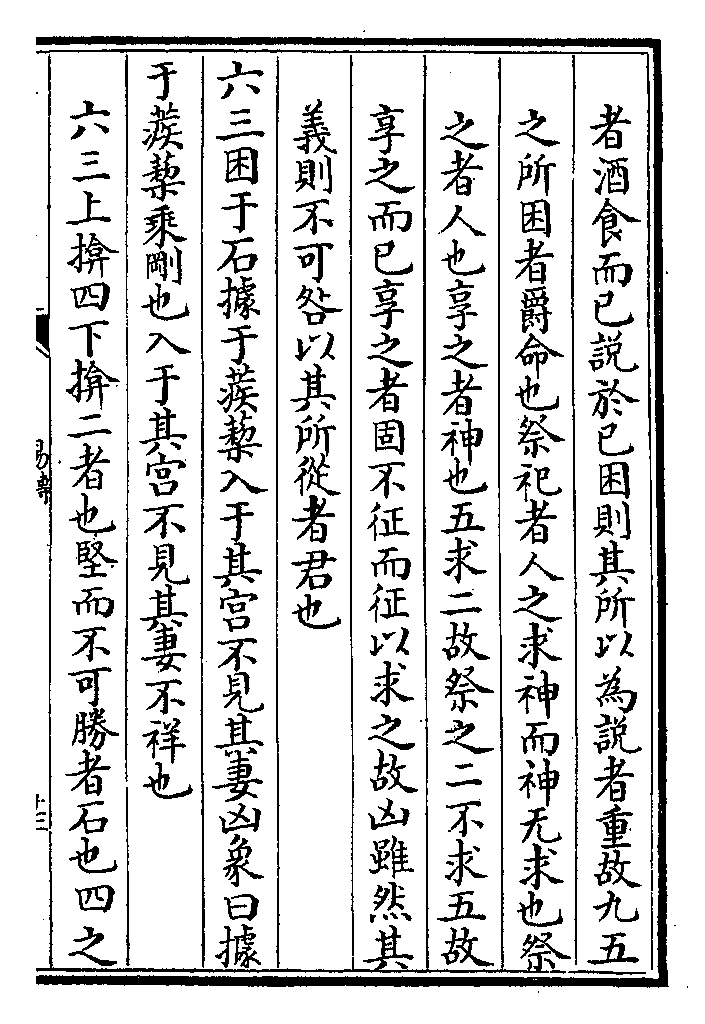 者酒食而已説於已困則其所以為説者重故九五
之所困者爵命也祭祀者人之求神而神无求也祭
之者人也享之者神也五求二故祭之二不求五故
享之而已享之者固不征而征以求之故凶雖然其
義則不可咎以其所從者君也
六三困于石據于蒺藜入于其宫不見其妻凶象曰據
于蒺藜乘剛也入于其宫不見其妻不祥也
六三上揜四下揜二者也堅而不可勝者石也四之